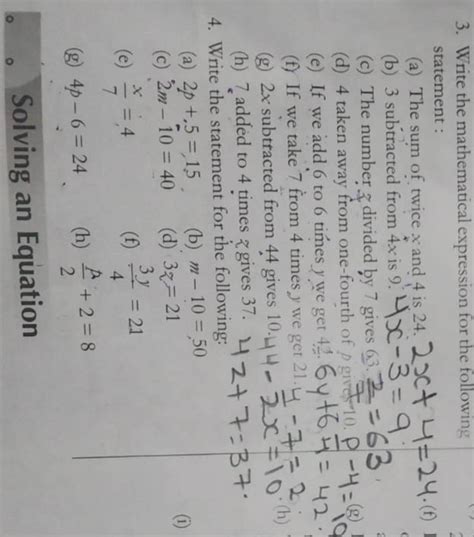 3. Write the mathematical expression for the following
statement :
(a) The sum of twice x and 4 is 24. 2x + 4 = 24.
(b) 3 subtracted from 4x is 9. 4x - 3 = 9
(c) The number z divided by 7 gives 63. z/7 = 63
(d) 4 taken away from one-fourth of p gives 10. p/4 - 4 = 10
(e) If we add 6 to 6 times y we get 42. 6y + 6 = 42.
(f) If we take 7 from 4 times y we get 21.
(g) 2x subtracted from 44 gives 10. 44 - 2x = 10.
(h) 7 added to 4 times z gives 37. 4z + 7 = 37.
4. Write the statement for the following:
(a) 2p + 5 = 15 (b) m - 10 = 50
(c) 2m - 10 = 40 (d) 3z = 21
(e) x/7 = 4 (f) 3y/4 = 21
(g) 4p - 6 = 24 (h) p/2 + 2 = 8
Solving an Equation
(f)
(g)
(h)
(i)